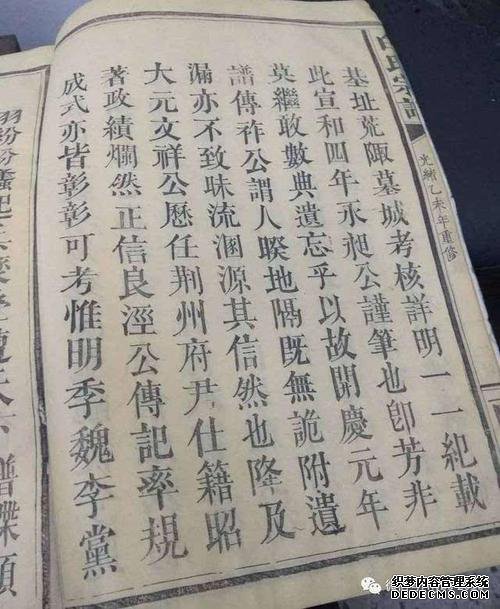 氏宗譜
光緒乙未年重修
基址荒陬墓城考核詳明一一紀載
此宣和四年永昶公謹筆也卽芳非
莫繼敢數典遺忘乎以故開慶元年
譜傳祚公謂人暌地隔既無詭附遺
漏亦不致昧流溷源其信然也隆及
大元文祥公歷任荆州府尹仕籍昭
著政績爛然正信良涇公傳記率規
成式亦皆彰彰可考惟明季魏李黨
羽紛紛起譜牒
织梦内容管理系统
DEDECMS.COM